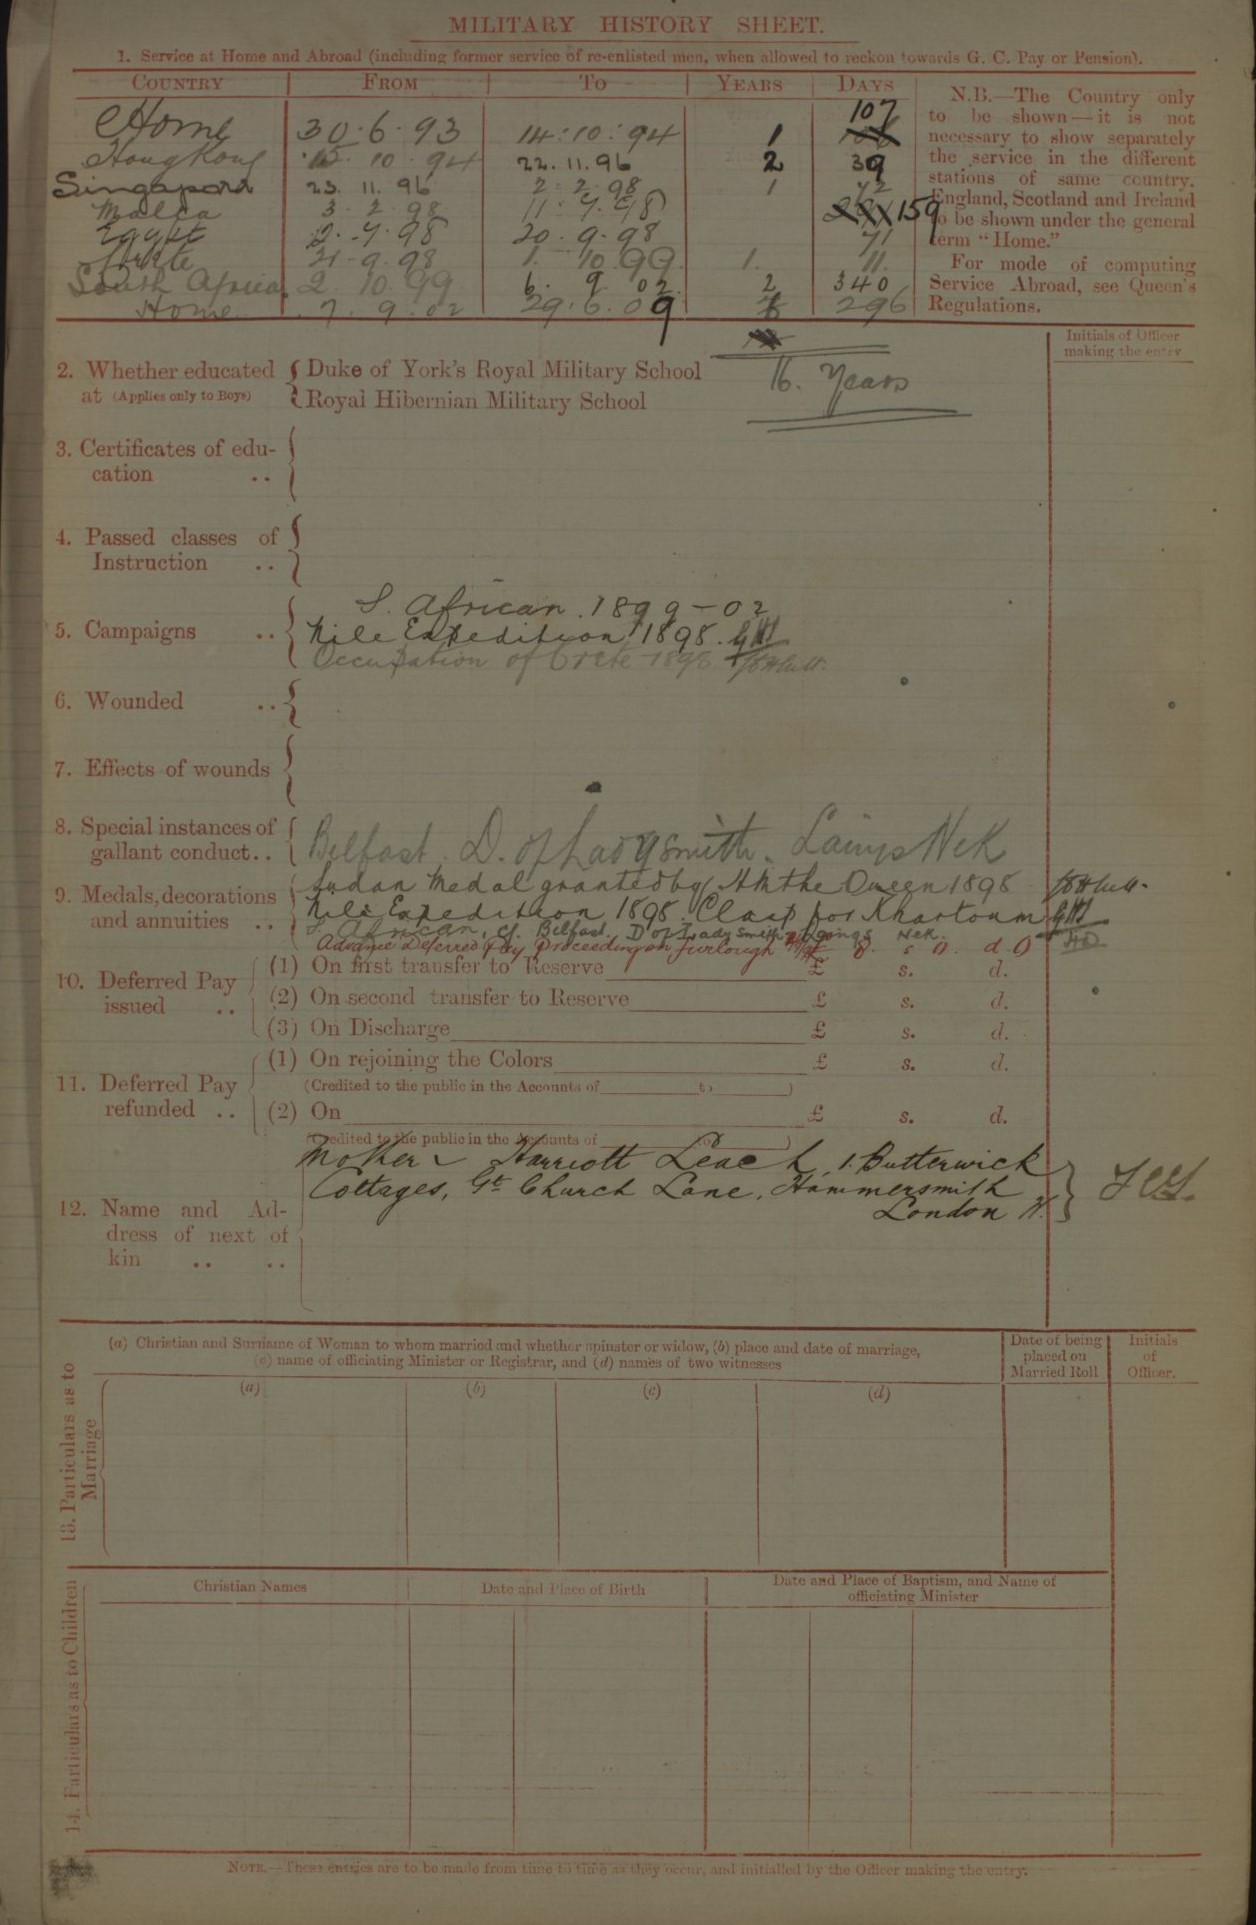 MILITARY HISTORY SHEET.
1. Service at Home and Abroad (including former service of re-enlisted men, when allowed to reckon towards G. C. Pay or Pension).
COUNTRY FROM TO YEARS DAYS
Home 30.6.93 14:10:94 1 107
Hong Kong 15.10.94 22.11.96 2 39
Singapore 23.11.96 2.2.98 1 72
Malta 3.2.98 11.7.98 159
Egypt 12.7.98 20.9.98 71
Crete 21.9.98 1.10.99 1. 11.
South Africa. 2.10.99 6.9.02. 2 340
Home 7.9.02 29.6.09 296
N.B.—The Country only
to be shown—it is not
necessary to show separately
the service in the different
stations of same country.
England, Scotland and Ireland
to be shown under the general
term "Home."
For mode of computing
Service Abroad, see Queen's
Regulations.
Initials of Officer
making the entry
16. Years
2. Whether educated Duke of York's Royal Military School
at (Applies only to Boys) Royal Hibernian Military School
3. Certificates of edu-
cation ..
4. Passed classes of
Instruction ..
S. African. 1899-02
5. Campaigns .. Nile Expedition 1898.
Occupation of Crete 1898
6. Wounded ..
7. Effects of wounds
8. Special instances of
gallant conduct.. Belfast. D. of Ladysmith. Laings Nek
9. Medals, decorations Sudan Medal granted by H M the Queen 1898
and annuities .. Nile Expedition 1898. Clasp for Khartoum
S. African, Belfast, D of Lady Smith Laings Nek.
Advance Deferred Pay Proceeding on furlough
10. Deferred Pay (1) On first transfer to Reserve £ s. d.
issued .. (2) On second transfer to Reserve £ s. d.
(3) On Discharge £ s. d.
11. Deferred Pay (1) On rejoining the Colors £ s. d.
(Credited to the public in the Accounts of to )
refunded .. (2) On £ s. d.
(Credited to the public in the Accounts of to )
Mother Harriott Leach, 1. Butterwick
Cottages, Gt Church Lane, Hammersmith
London W.
12. Name and Ad-
dress of next of
kin .. ..
13. Particulars as to
Marriage
(a) Christian and Surname of Woman to whom married and whether spinster or widow, (b) place and date of marriage,
(c) name of officiating Minister or Registrar, and (d) names of two witnesses
Date of being
placed on
Married Roll
Initials
of
Officer.
(a) (b) (c) (d)
14. Particulars as to Children
Christian Names Date and Place of Birth Date and Place of Baptism, and Name of
officiating Minister
NOTE.—These entries are to be made from time to time as they occur, and initialled by the Officer making the entry.